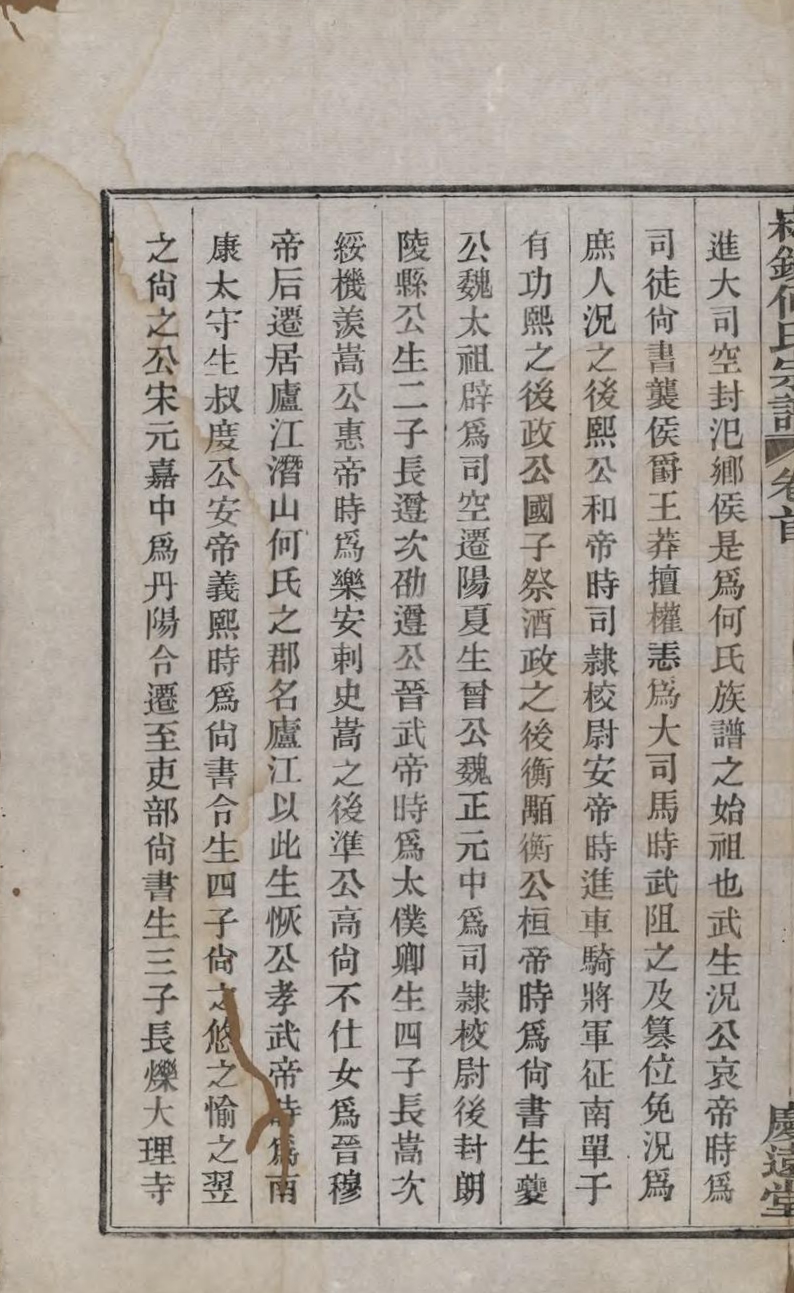 何氏宗譜 卷首 慶遠堂
進大司空封汜鄉侯是爲何氏族譜之始祖也武生況公哀帝時爲
司徒尙書襲侯爵王莽擅權恚爲大司馬時武阻之及篡位免況爲
庶人況之後熙公和帝時司隷校尉安帝時進車騎將軍征南單于
有功熙之後政公國子祭酒政之後衡顒衡公桓帝時爲尙書生夔
公魏太祖辟爲司空遷陽夏生曾公魏正元中爲司隷校尉後封朗
陵縣公生二子長遵次劭遵公晉武帝時爲太僕卿生四子長嵩次
綏機羨嵩公惠帝時爲樂安刺史嵩之後準公高尙不仕女爲晉穆
帝后遷居廬江潛山何氏之郡名廬江以此生恢公孝武帝時爲南
康太守生叔度公安帝義熙時爲尙書令生四子尙之悠之愉之翌
之尙之公宋元嘉中爲丹陽令遷至吏部尙書生三子長爍大理寺